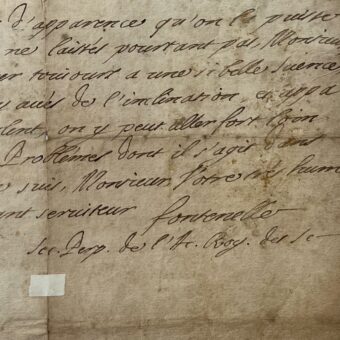 d'apparence qu'on le puisse
ne laissés pourtant pas, Monsieur
er toujours a une si belle science
y avés de l'inclination, et appa
lent, on y peut aller fort loin
Problemes dont il s'agit dans
e suis, Monsieur Votre tres hum
ant serviteur fontenelle
Sec. Perp. de l'Ac. Roy. des Sc